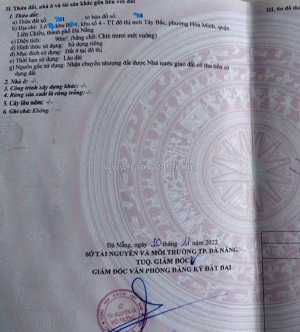 II. Thửa đất, nhà ở và tài sản khác gắn liền với đất
1. Thửa đất:
a) Thửa đất số: tờ bản đồ số:
b) Địa chỉ: Lô khu số 4 - TT đô thị mới Tây Bắc, phường Hòa Minh, quận
Liên Chiểu, thành phố Đà Nẵng
c) Diện tích: 90m², (bằng chữ: Chín mươi mét vuông)
d) Hình thức sử dụng: Sử dụng riêng
đ) Mục đích sử dụng: Đất ở tại đô thị
e) Thời hạn sử dụng: Lâu dài
g) Nguồn gốc sử dụng: Nhận chuyển nhượng đất được Nhà nước giao đất có thu tiền sử
dụng đất
2. Nhà ở: -/-
3. Công trình xây dựng khác: -/-
4. Rừng sản xuất là rừng trồng: -/-
5. Cây lâu năm: -/-
6. Ghi chú: Không
III. Sơ đồ
Đà Nẵng, ngày 20 tháng 2022
SỞ TÀI NGUYÊN VÀ MÔI TRƯỜNG TP. ĐÀ NẴNG
TUQ. GIÁM ĐỐC
GIÁM ĐỐC VĂN PHÒNG ĐĂNG KÝ ĐẤT ĐAI